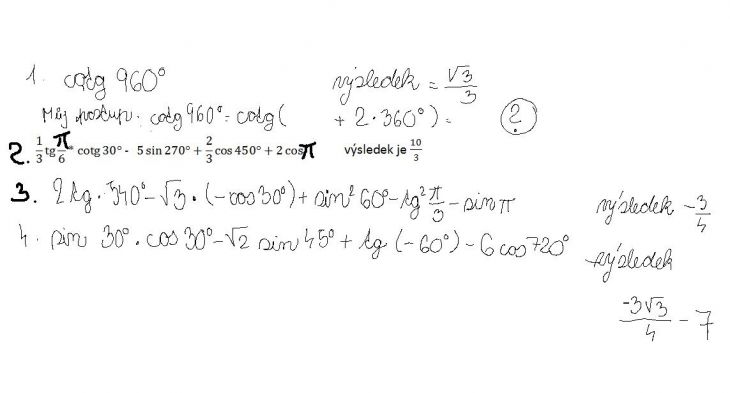 1. cotg 960° výsledek = √3/3
Můj postup: cotg 960° = cotg ( + 2·360°) = ?
2. 1/3 tg π/6 * cotg 30° - 5 sin 270° + 2/3 cos 450° + 2 cos π výsledek je 10/3
3. 2tg·540° - √3·(-cos 30°) + sin² 60° - tg² π/3 - sin π výsledek -3/4
4. sin 30°·cos 30° - √2 sin 45° + tg (-60°) - 6 cos 720° výsledek
-3√3/4 - 7